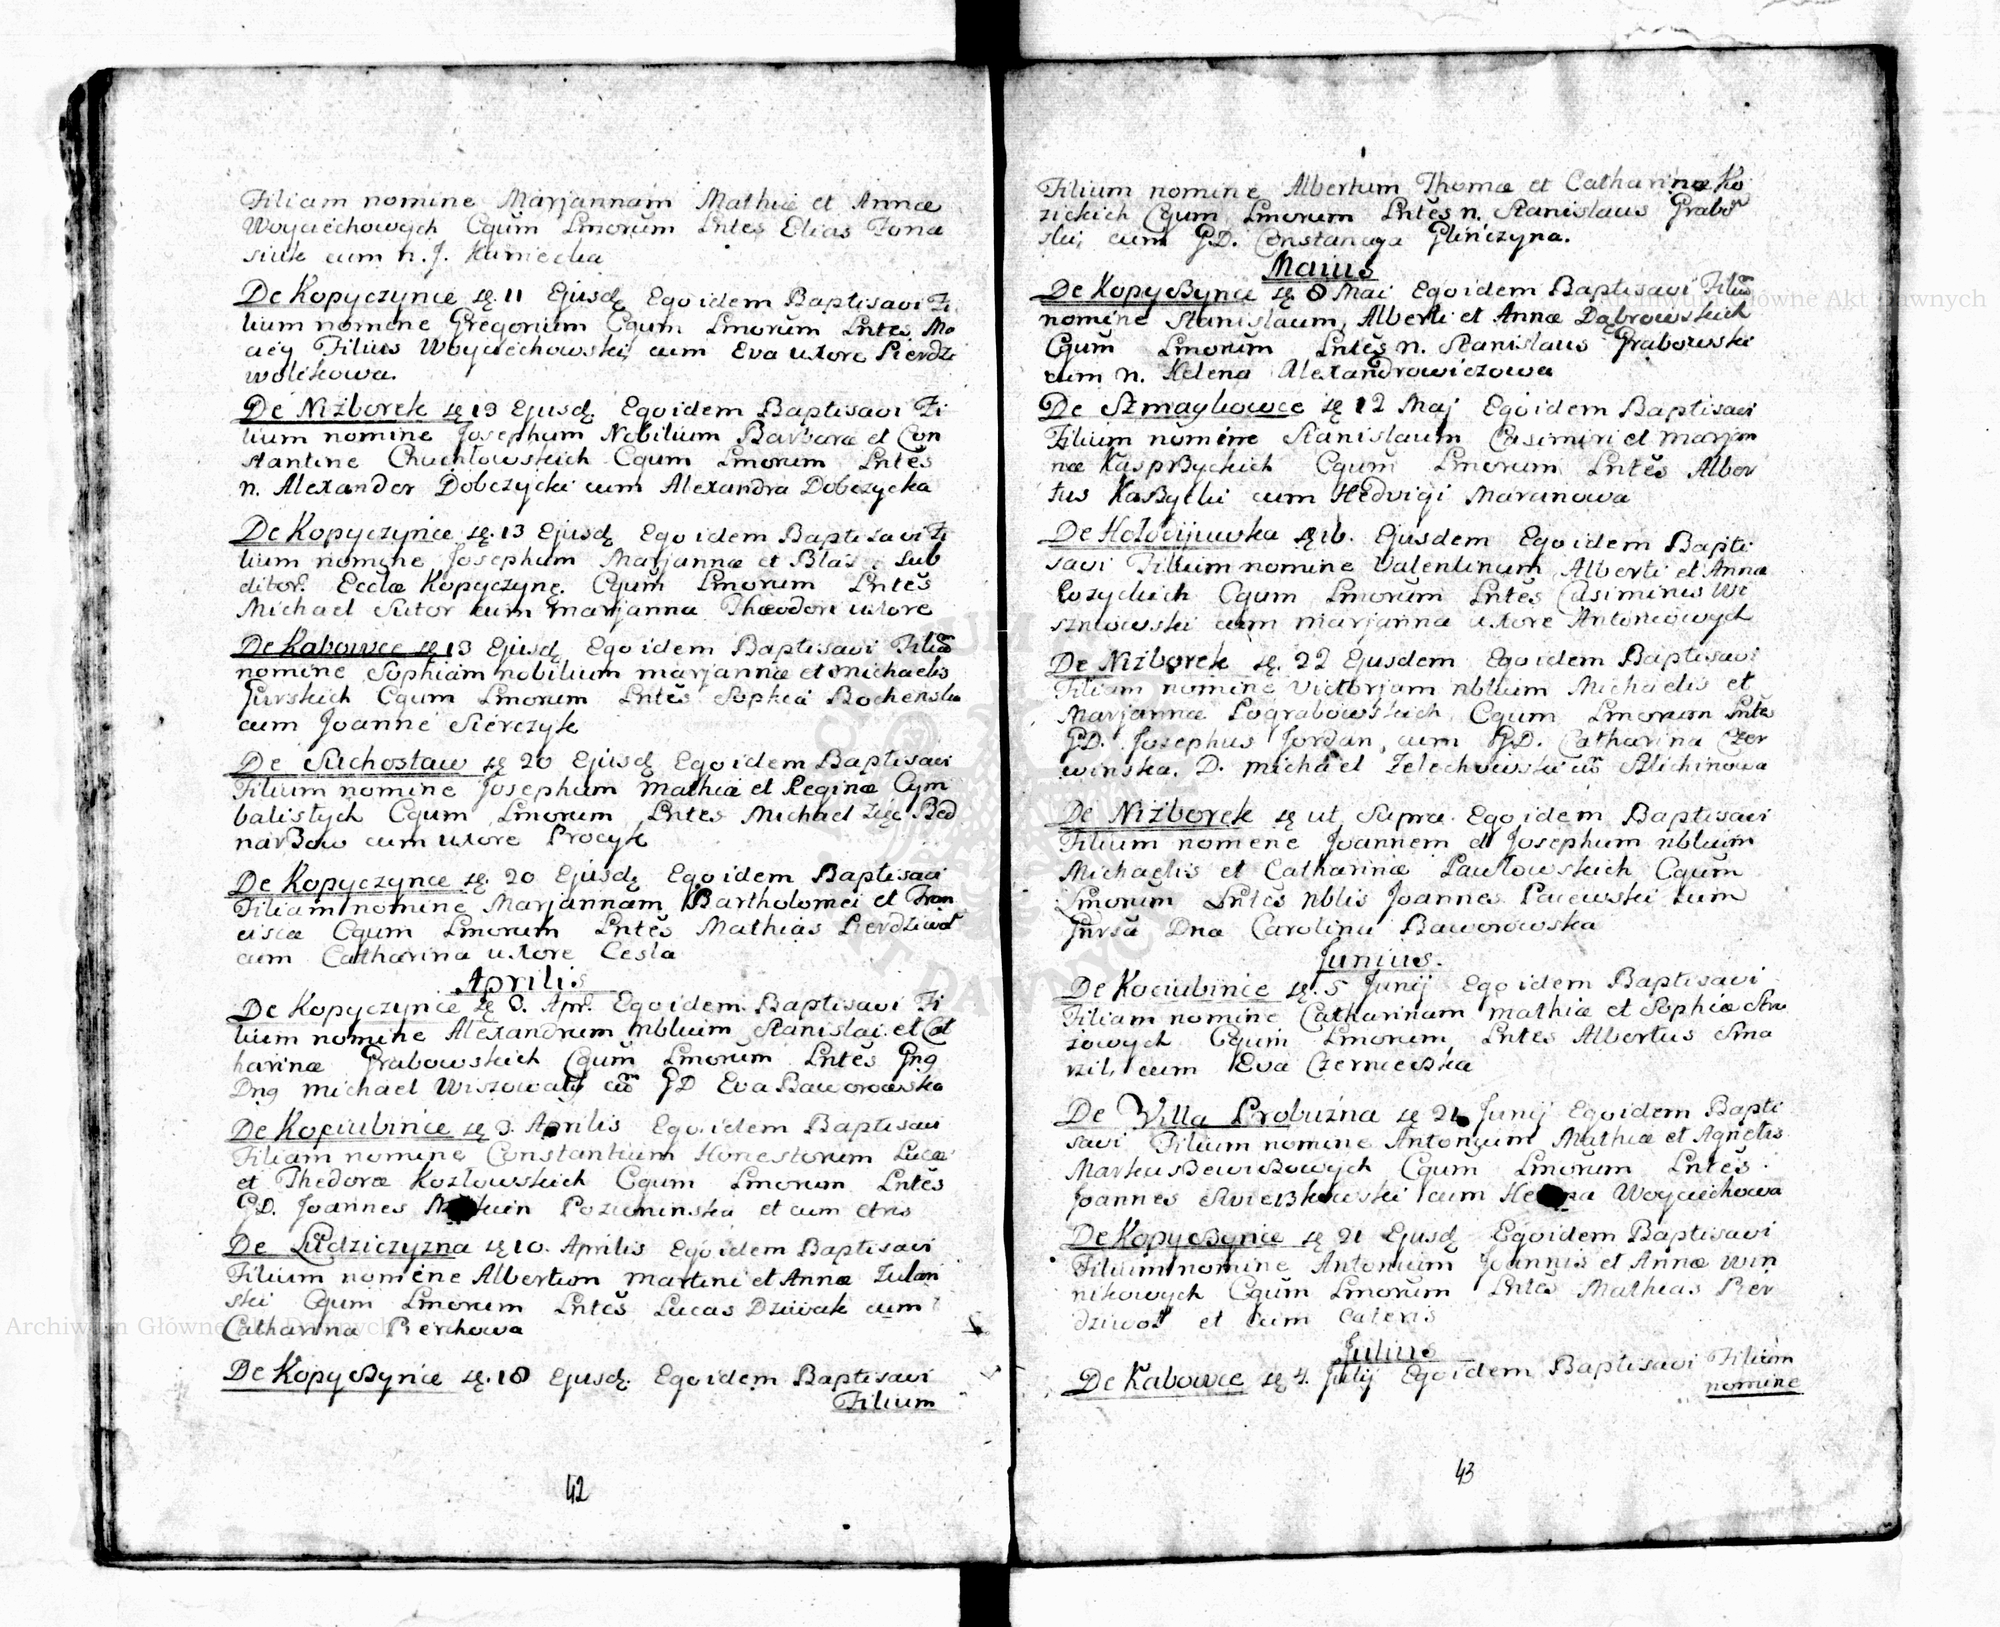 Filiam nomine Marjannam Mathiæ et Annæ
Woyciechowych Cgum Lmorum Lntes Elias Tona
siuk cum n. J. Kaniecka
De Kopyczynce sę. 11 Ejusdę Ego idem Baptisavi Fi
lium nomine Gregorium Cgum Lmorum Lntes Ma
ciey Filius Woyciechowski cum Eva uxore Pierdzi
wolkowa.
De Niżborek sę 13 Ejusdę Ego idem Baptisavi Fi
lium nomine Josephum Nobilium Barbaræ et Con
stantine Chuchłowskich Cgum Lmorum Lntes
n. Alexander Dobczycki cum Alexandra Dobczycka
De Kopyczynce sę. 13 Ejusdę Ego idem Baptisavi Fi
lium nomine Josephum Marjannæ et Blas: Sub
ditor. Ecclæ Kopyczynę. Cgum Lmorum Lntes
Michael Sutor cum Marjanna Theodori uxore
De Kabowce sę 13 Ejusdę Ego idem Baptisavi Filiã
nomine Sophiam nobilium Marjannæ et Michaelis
Gurskich Cgum Lmorum Lntes Sophia Bochenska
cum Joanne Sierczyk
De Suchostaw sę 20 Ejusdę Ego idem Baptisavi
Filium nomine Josephum Mathiæ et Reginæ Cym
balistych Cgum Lmorum Lntes Michael Zięc Bed
narBow cum uxore Procyk
De Kopyczynce sę. 20 Ejusdę Ego idem Baptisavi
Filiam nomine Marjannam Bartholomei et Fran
ciscæ Cgum Lmorum Lntes Mathias Pierdziwoł
cum Catharina uxore Cesla
Aprilis
De Kopyczynce sę 3. Apr. Ego idem Baptisavi Fi
lium nomine Alexandrum nbluim Stanislai et Cat
harinæ Grabowskich Cgum Lmorum Lntes Gng
Dng Michael Wiszowaty cũ GD Eva Baworowska
De Kociubince sę 3. Aprilis Ego idem Baptisavi
Filiam nomine Constantium Honestorum Lucæ
et Thedoræ Kozłowskich Cgum Lmorum Lntes
G.D. Joannes Poziminska et cum ctris
De Ludziczyzna sę 10. Aprilis Ego idem Baptisavi
Filium nomine Albertum Martini et Annæ Zulan
ski Cgum Lmorum Lntes Lucas Dziwak cum
Catharina Pierchowa
De KopyByńce sę. 18 Ejusdę. Ego idem Baptisavi
Filium
42
Filium nomine Albertum Thomæ et Catharinæ Ko
zickich Cgum Lmorum Lntes n. Stanislaus Grabo
ski, cum G.D. Constancya Glińczyna.
Maius
De KopyBynce sę. 8 Mai Ego idem Baptisavi Filiũ
nomine Stanislaum, Alberti et Annæ Dąbrowskich
Cgum Lmorum Lntes n. Stanislaus Grabowski
cum n. Helena Alexandrowiczowa
De Szmaykowce sę 12 Maj Ego idem Baptisavi
Filium nomine Stanislaum Casimiri et Marjan
næ KasprByckich Cgum Lmorum Lntes Alber
tus KaBytki cum Hedvigi Marcinowa
De Hołodijuwka sę 16. Ejusdem Ego idem Bapti
savi Filium nomine Valentinum Alberti et Annæ
Łozyckich Cgum Lmorum Lntes Casimirus Wi
szniowski cum Marjanna uxore Antoniowych
De Niżborek sę. 22 Ejusdem Ego idem Baptisavi
Filiam nomine Victorjam nbluim Michaelis et
Marjannæ Pograbowskich Cgum Lmorum Lntes
GD. Josephus Jordan, cum GD. Catharina Czer
winska. D. Michael Zelechowski cũ Slichinowa
De Niżborek sę ut Supra Ego idem Baptisavi
Filium nomene Joannem et Josephum nbluim
Michaelis et Catharinæ Pawłowskich Cgum
Lmorum Lntes Nblis Joannes Paiewski cum
Gnrsa Dna Carolina Baworowska
Junius.
De Kociubince sę. 5 Junij Ego idem Baptisavi
Filiam nomine Catharinam Mathiæ et Sophiæ Stru
zowych Cgum Lmorum Lntes Albertus Sma
rzil, cum Eva CzernieBka
De Villa Probuźna sę 21 Junij Ego idem Bapti
savi Filium nomine Antonium Mathiæ et Agnetis
MarkusBewiBowych Cgum Lmorum Lntes.
Joannes SwierBkowski cum Helena Woyciechowa
De KopyByńce sę 21 Ejusdę Ego idem Baptisavi
Filium nomine Antonium Joannis et Annæ Win
nikowych Cgum Lmorum Lntes Mathias Pier
dziwoł et cum cateris
Julius
De Kabowce sę 4. Julij Ego idem Baptisavi Filium
nomine
43
Archiwum Główne Akt Dawnych
Archiwum Główne Akt Dawnych